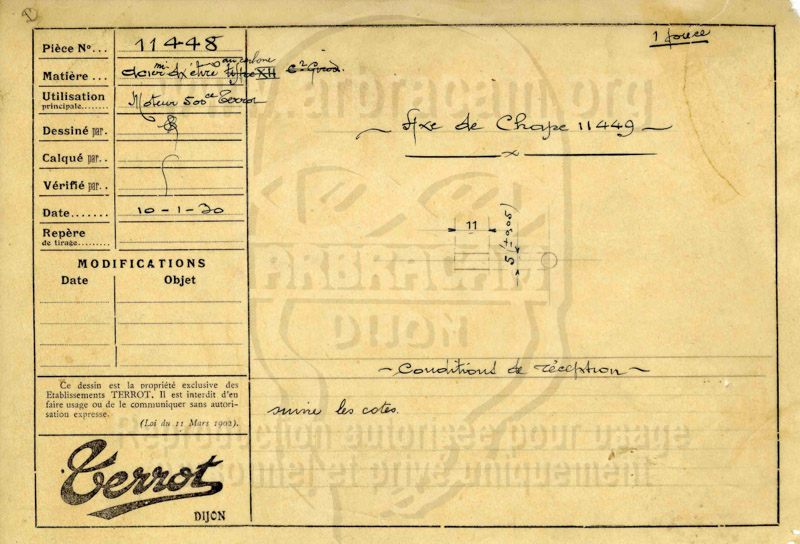 1 pièce
Pièce No... 11448
Matière ... acier mi dur au carbone
XH
Utilisation
principale........ Moteur 500cc Terrot
Dessiné par.
Calqué par..
Vérifié par..
Date....... 10-1-30
Repère
de tirage.........
MODIFICATIONS
Date Objet
Ce dessin est la propriété exclusive des
Etablissements TERROT. Il est interdit d'en
faire usage ou de le communiquer sans autori-
sation expresse.
(Loi du 11 Mars 1902).
Terrot
DIJON
Axe de Chape 11449
11
5 (±0,05)
Conditions de réception
suivre les cotes.
www.arbracam.org
ARBRACAM
DIJON
Reproduction autorisée pour usage
personnel et privé uniquement